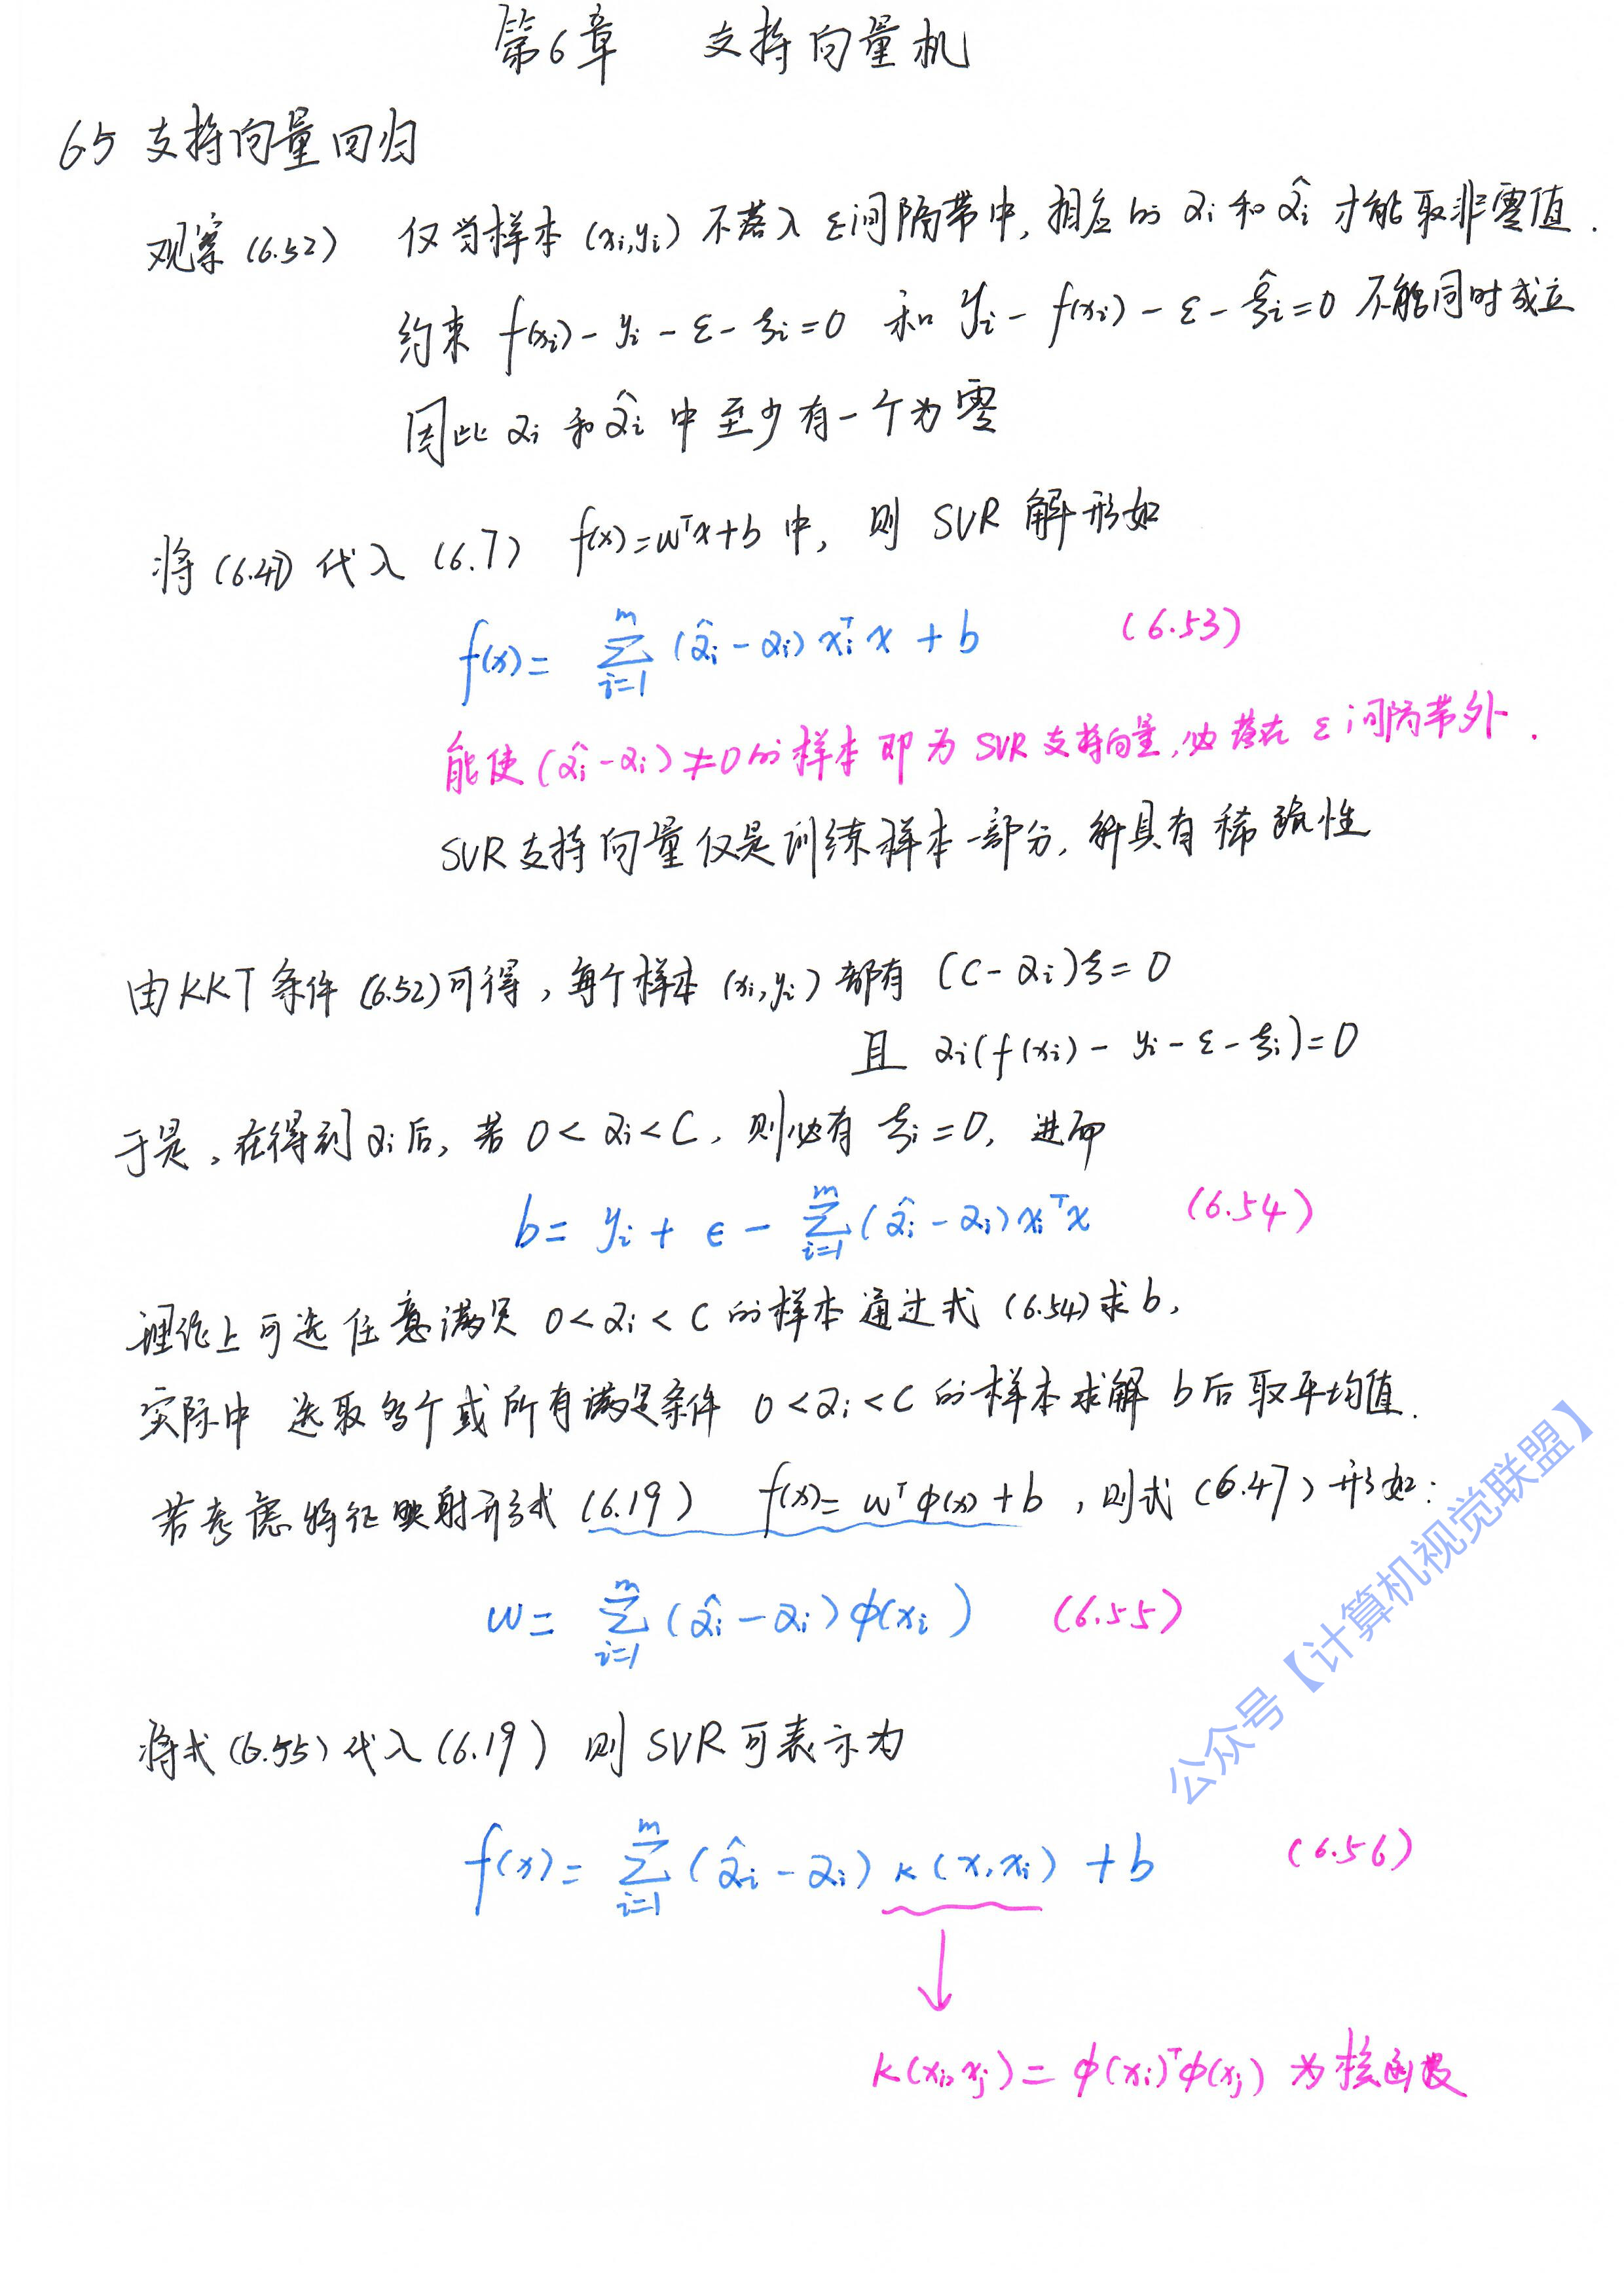 第6章 支持向量机
6.5 支持向量回归
观察 (6.52) 仅当样本 (xi,yi) 不落入 ε间隔带中, 相应的 αi 和 α̂i 才能取非零值.
约束 f(xi) - yi - ε - ξi = 0 和 yi - f(xi) - ε - ξ̂i = 0 不能同时成立
因此 αi 和 α̂i 中至少有一个为零
将 (6.47) 代入 (6.7) f(x) = wᵀx + b 中, 则 SVR 解形如
f(x) = ∑_{i=1}^{m} (α̂i - αi) xiᵀx + b (6.53)
能使 (α̂i - αi) ≠ 0 的样本即为 SVR 支持向量, 必落在 ε 间隔带外.
SVR 支持向量仅是训练样本一部分, 解具有稀疏性
由 KKT 条件 (6.52) 可得, 每个样本 (xi,yi) 都有 (C - αi)ξ = 0
且 αi(f(xi) - yi - ε - ξi) = 0
于是, 在得到 αi 后, 若 0 < αi < C, 则必有 ξi = 0, 进而
b = yi + ϵ - ∑_{i=1}^{m} (α̂i - αi) xiᵀx (6.54)
理论上可选任意满足 0 < αi < C 的样本通过式 (6.54) 求 b,
实际中 选取多个或所有满足条件 0 < αi < C 的样本求解 b 后取平均值.
若考虑特征映射形式 (6.19) f(x) = wᵀφ(x) + b, 则式 (6.47) 形如:
w = ∑_{i=1}^{m} (α̂i - αi) φ(xi) (6.55)
将式 (6.55) 代入 (6.19) 则 SVR 可表示为
f(x) = ∑_{i=1}^{m} (α̂i - αi) κ(x, xi) + b (6.56)
κ(xi, xj) = φ(xi)ᵀφ(xj) 为核函数
公众号【计算机视觉联盟】